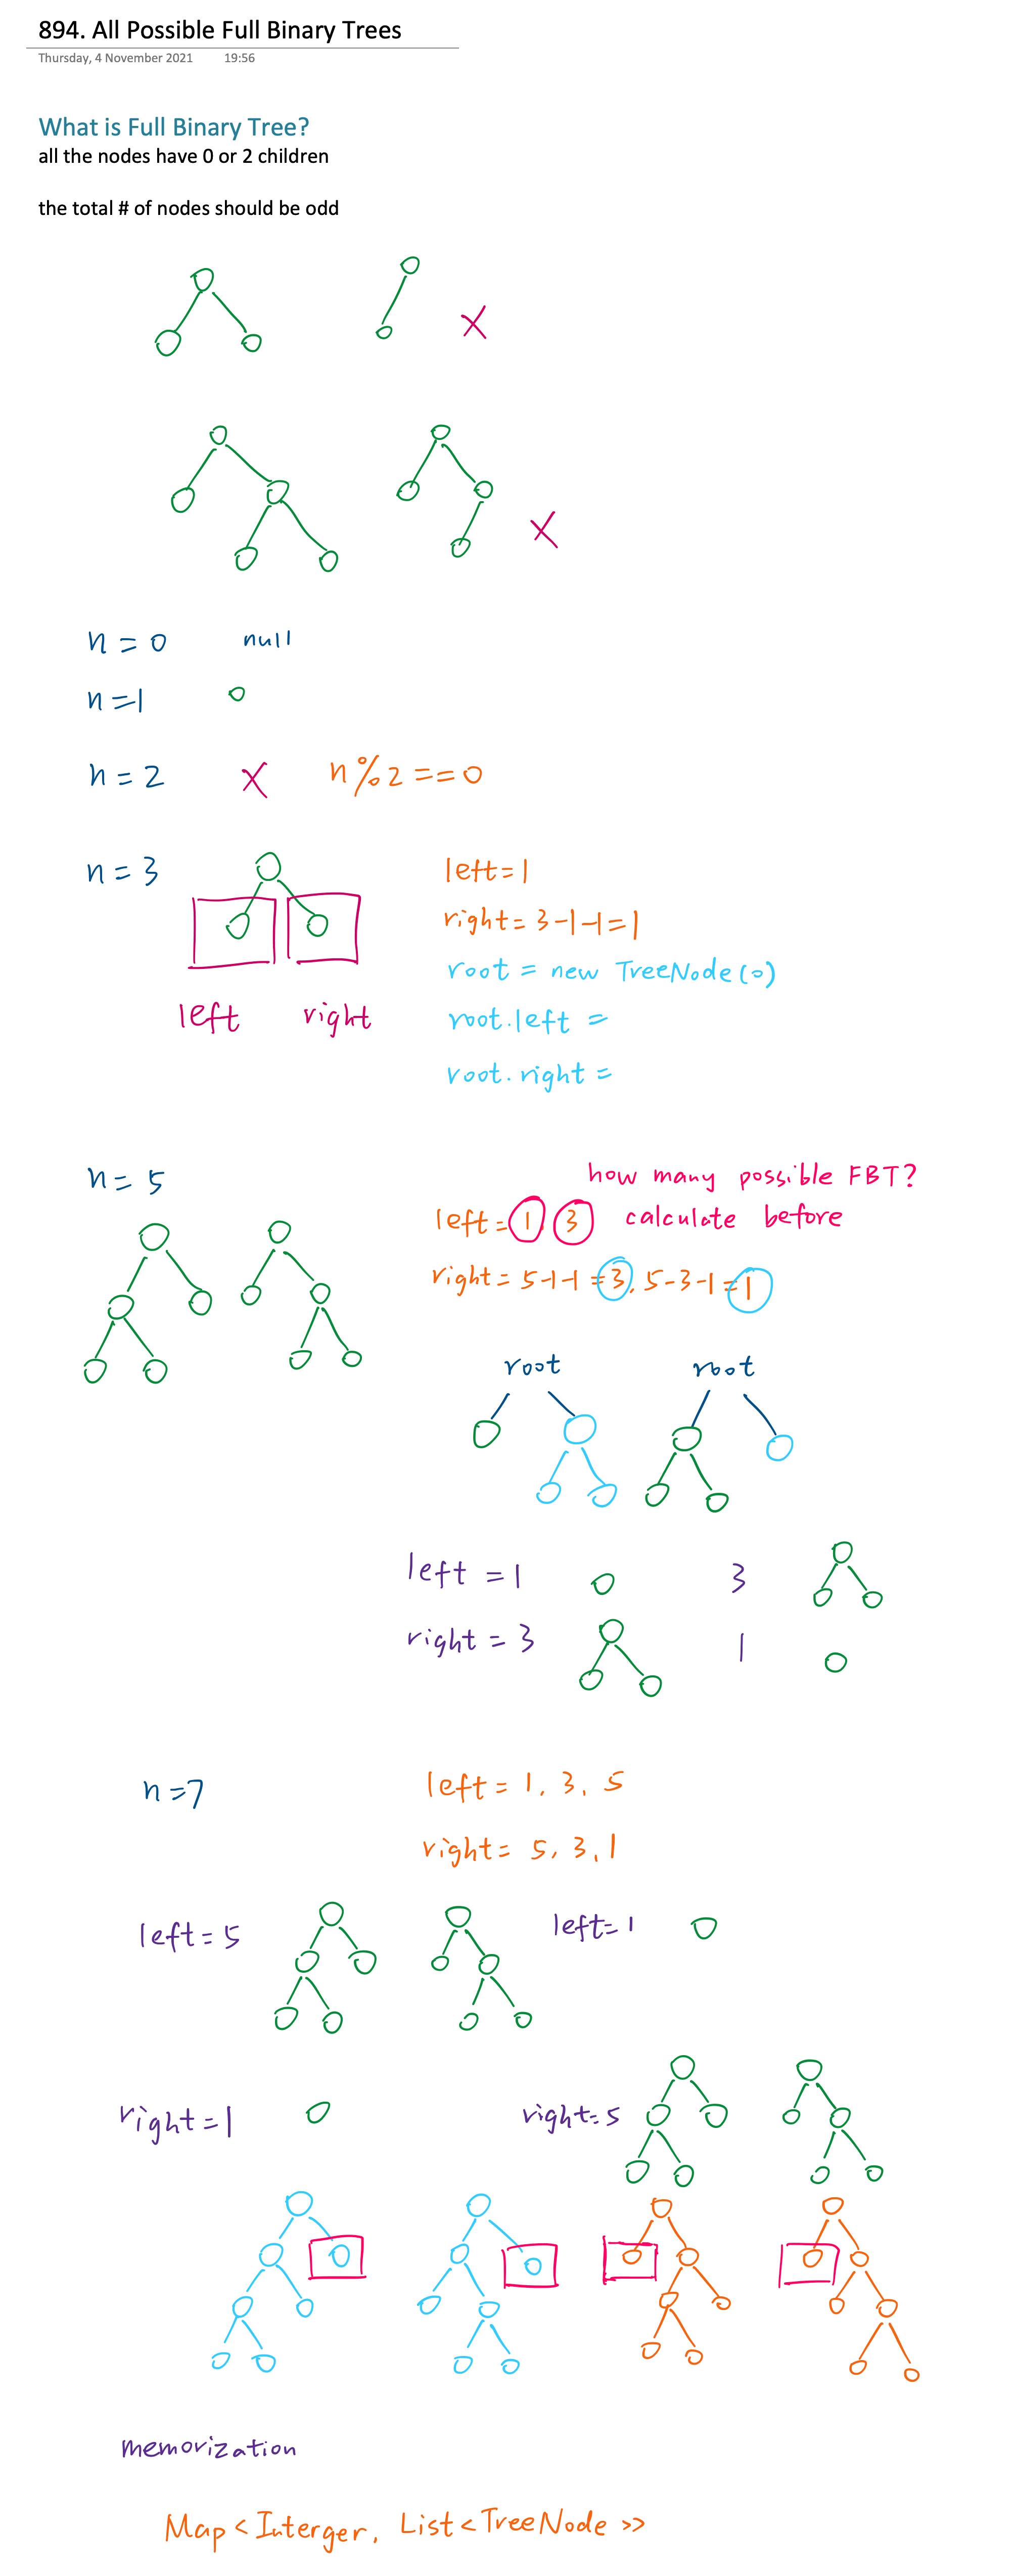 894. All Possible Full Binary Trees
Thursday, 4 November 2021 19:56
What is Full Binary Tree?
all the nodes have 0 or 2 children
the total # of nodes should be odd
X
X
n = 0 null
n = 1
n = 2 X n % 2 == 0
n = 3 left = 1
right = 3-1-1 = 1
root = new TreeNode(0)
left right root.left =
root.right =
n = 5 how many possible FBT?
left = 1 3 calculate before
right = 5-1-1 = 3, 5-3-1 = 1
root root
left = 1 3
right = 3 1
n = 7 left = 1, 3, 5
right = 5, 3, 1
left = 5 left = 1
right = 1 right = 5
memorization
Map < Interger, List < TreeNode >>